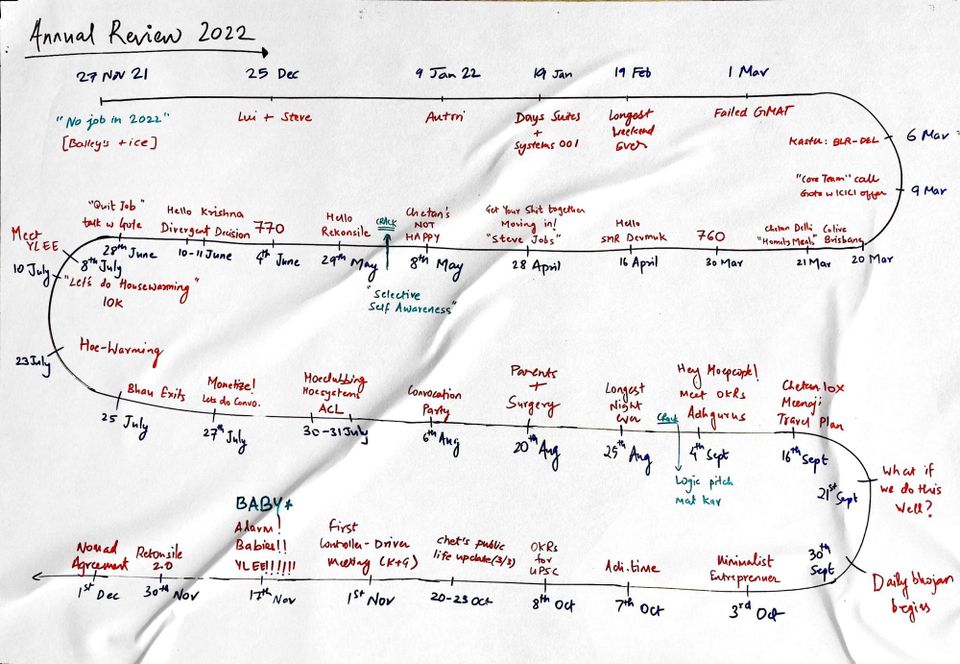 Annual Review 2022
27 Nov 21
25 Dec
9 Jan 22
19 Jan
19 Feb
1 Mar
"No job in 2022"
[Bailey's + ice]
Lui + Steve
Autori
Days Suites
+
Systems 001
Longest
Weekend
Ever
Failed GMAT
Kaster: BLR-DEL
6 Mar
"Core Team" call
Goto w ICICI offer
9 Mar
Chetan Delhi
"Homits Meals"
21 Mar
Colive
Brisbane
20 Mar
760
30 Mar
Hello
SMR Devmuk
16 April
Get Your Shit together
Moving in!
"Steve Jobs"
28 April
Chetan's
NOT
HAPPY
8th May
CRACK
"Selective
Self Awareness"
Hello
Rekonsile
29th May
770
4th June
Hello Krishna
Divergent Decision
10-11 June
"Quit Job"
talk w Gote
28th June
Meet
YLEE
8th July
10 July
"Let's do Housewarming"
10K
Hoe-Warming
23 July
Bhau Exits
25 July
Monetize!
Lets do Convo.
27th July
Hoeclubbing
Hoesystems
ACL
30-31 July
Convocation
Party
6th Aug
Parents
+
Surgery
20th Aug
Longest
Night
ever
25th Aug
Crack
Logic pitch
mat kar
Hey Hoepeople!
Meet OKRs
Adhgurus
4th Sept
Chetan 10x
Meenoji
Travel Plan
16th Sept
21st Sept
What if
we do this
Well?
30th
Sept
Daily bhojan
begins
Minimalist
Entreprenner
3rd Oct
Adi-time
7th Oct
OKRs
for
UPSC
8th Oct
Chet's public
life update (2/3)
20-23 Oct
First
Controller-Driver
Meeting (K+G)
1st Nov
BABY*
Alarm!
Babies!!
YLEE!!!!!!
17th Nov
Retonsile
2.0
30th Nov
Nomad
Agreement
1st Dec